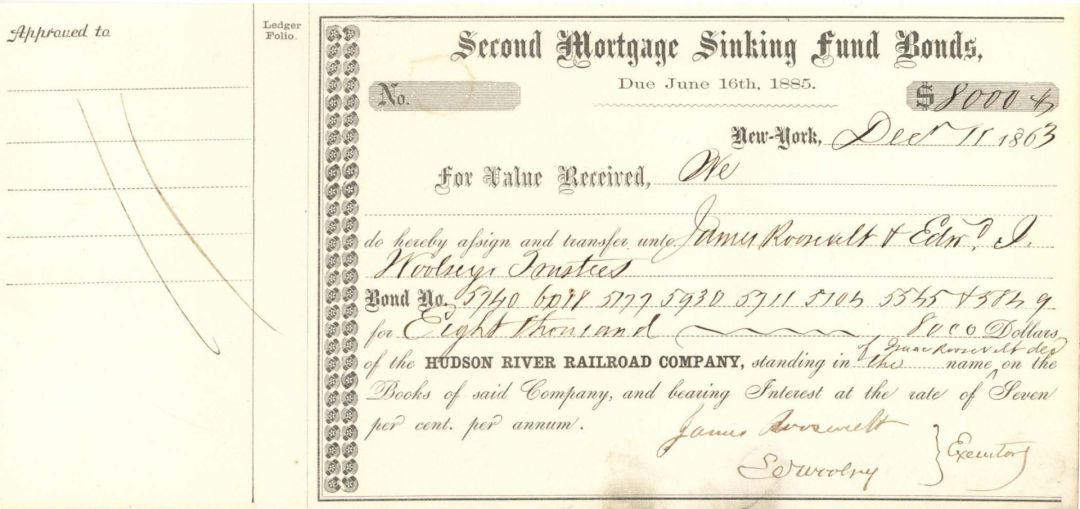 Approved to
Ledger
Folio.
Second Mortgage Sinking Fund Bonds,
Due June 16th, 1885.
No.
$ 8000
New-York, Decr 11 1863
For Value Received, We
do hereby assign and transfer unto James Roosevelt & Edwd. J.
Woolsey, Trustees
Bond No. 5740 6018 5177 5930 5711 5104 5545 & 5849
for Eight thousand 8000 Dollars
of Isaac Roosevelt decd
of the HUDSON RIVER RAILROAD COMPANY, standing in the name on the
Books of said Company, and bearing Interest at the rate of Seven
per cent. per annum.
James Roosevelt
EJ Woolsey
Executors